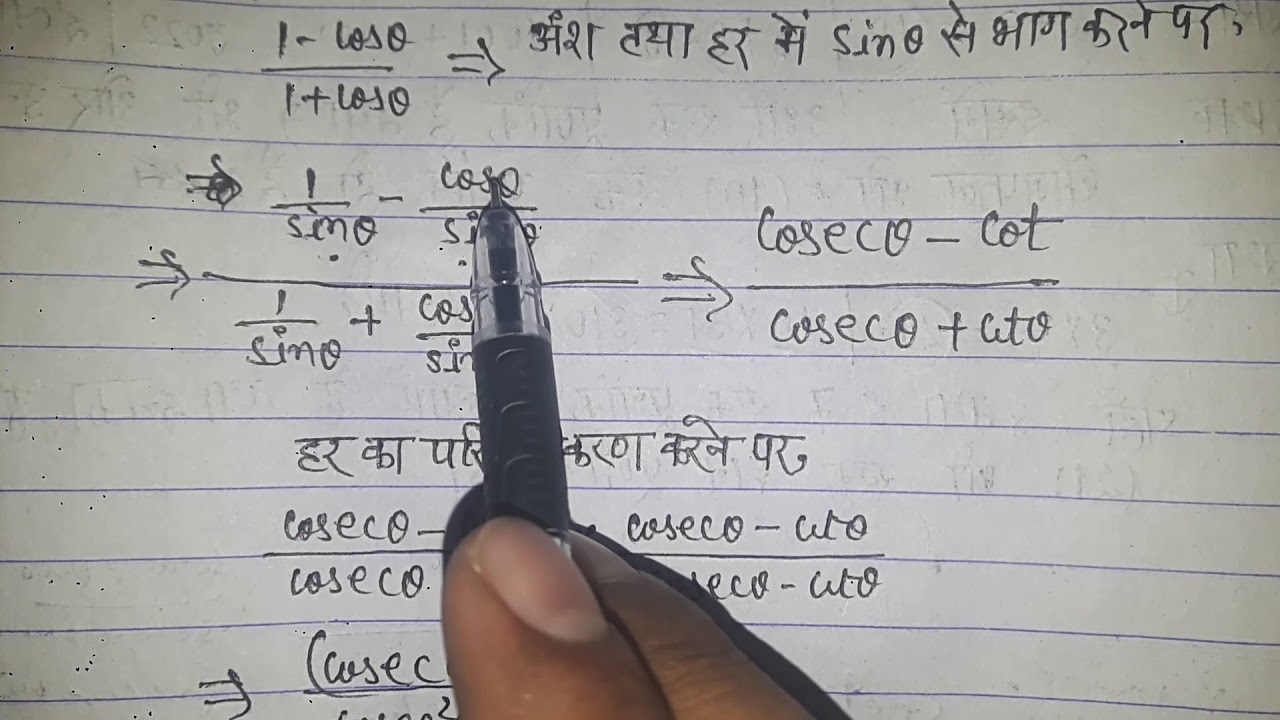 1 - cosθ
1 + cosθ ⇒ अंश तथा हर में sinθ से भाग करने पर,
⇒ 1/sinθ - cosθ/
⇒ 1/sinθ + ⇒ cosecθ - cot
cosecθ + cotθ
हर का करने पर,
cosecθ - cosecθ - cotθ
cosecθ - cotθ
⇒ (cosec